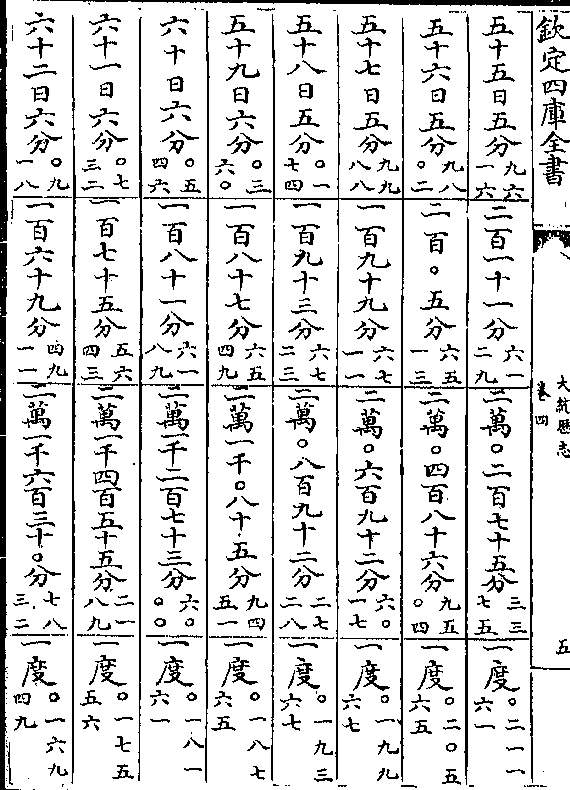 欽定四庫全書
大統歷志
卷四
五
五十五日五分九六一六 二百一十一分六一二九 二萬〇二百七十五分三三七五 一度〇二一一六一
五十六日五分九八〇二 二百〇五分六五一三 二萬〇四百八十六分九五〇四 一度〇二〇五六五
五十七日五分九九八八 一百九十九分六七一一 二萬〇六百九十二分六〇一七 一度〇一九九六七
五十八日五分〇一七四 一百九十三分六七二三 二萬〇八百九十二分二七二八 一度〇一九三六七
五十九日六分〇三六〇 一百八十七分六五四九 二萬一千〇八十五分九四五一 一度〇一八七六五
六十日六分〇五四六 一百八十一分六一八九 二萬一千二百七十三分六〇〇〇 一度〇一八一六一
六十一日六分〇七三二 一百七十五分五六四三 二萬一千四百五十五分二一八九 一度〇一七五五六
六十二日六分〇九一八 一百六十九分四九一一 二萬一千六百三十〇分七八三二 一度〇一六九四九